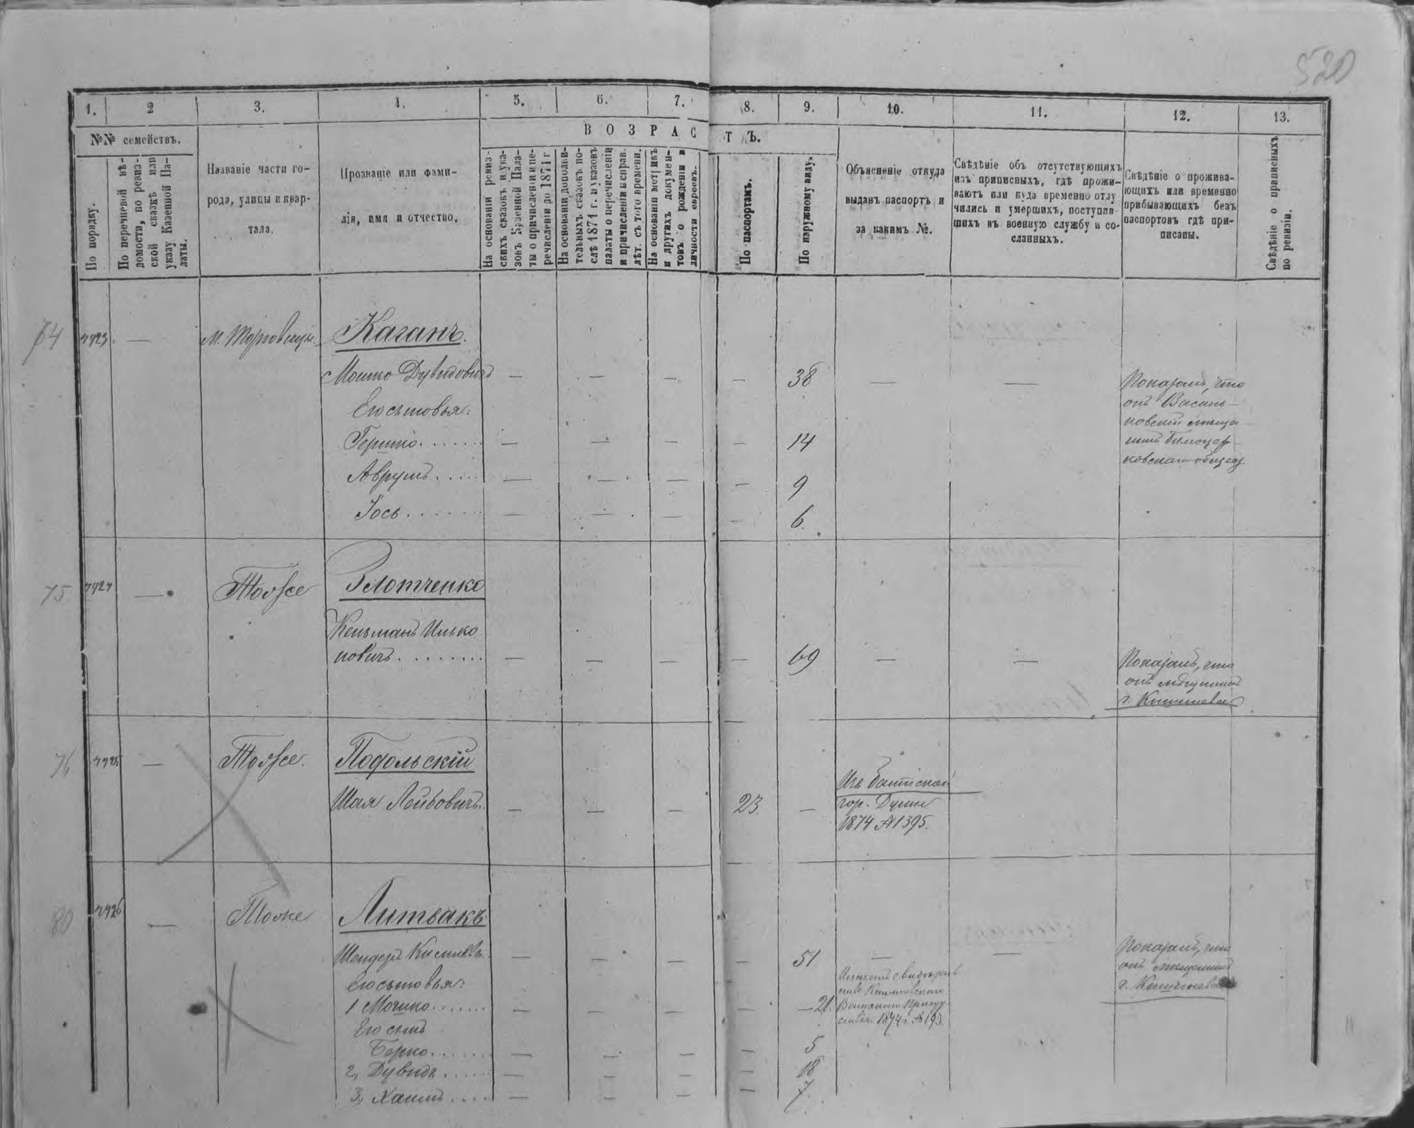 520
1.
2
3.
4.
5.
6.
7.
8.
9.
10.
11.
12.
13.
№№ семействъ.
ВОЗРАСТЪ.
По порядку.
По перечневой вѣ-
домости, по ревиз-
ской сказкѣ или
указу Казенной Па-
латы.
Названіе части го-
рода, улицы и квар-
тала.
Прозваніе или фами-
лія, имя и отчество.
На основаніи ревиз-
скихъ сказокъ и ука-
зовъ Казенной Пала-
ты о причисленіи и пе-
речисленіи до 1871 г.
На основаніи дополни-
тельныхъ сказокъ по-
слѣ 1871 г. и указовъ
палаты о перечисленіи
и причисленіи и исправ.
лѣт. съ того времени.
На основаніи метрикъ
и другихъ докумен-
товъ о рожденіи и
личности евреевъ.
По паспортамъ.
По наружному виду.
Объясненіе откуда
выданъ паспортъ и
за какимъ №.
Свѣдѣніе объ отсутствующихъ
изъ приписныхъ, гдѣ прожи-
ваютъ или куда временно отлу-
чились и умершихъ, поступив-
шихъ въ военную службу и со-
сланныхъ.
Свѣдѣніе о прожива-
ющихъ или временно
прибывающихъ безъ
паспортовъ гдѣ при-
писаны.
Свѣдѣніе о приписныхъ
по ревизіи.
74
7423
—
Каганъ.
Мошко Дувидовичъ — — — — 38 — —
Его сыновья:
Гершко — — — — 14
Аврумъ — — — — 9
Іось — — — — 6.
Показалъ, что
онъ Василь-
ковскій мѣща-
75
7424
—
Тоже
Злотченко
Кельманъ Илько
новичъ — — — — 69 — —
Показалъ, что
онъ мѣщанинъ
г. Кишинева
76
7425
—
Тоже.
Подольскій
Шая Лейбовичъ. — — — 23 —
гор. Думы
1874 № 1395.
80
7426
—
Тоже
Литвакъ
— — — — 51 — —
Его сыновья:
1 Мошко — — — — 21.
Его сынъ
Берко — — — — 5
2, Дувидъ — — — — 18
3, Хаимъ — — — — 7.
1874 г. № 193.
Показалъ, что
онъ мѣщанинъ
г. Кишинева